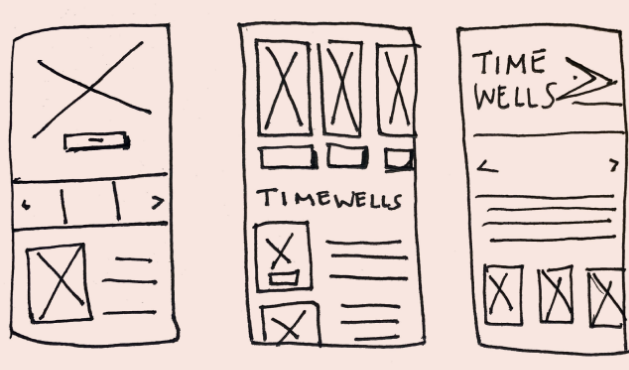 TIMEWELLS
TIME
WELLS